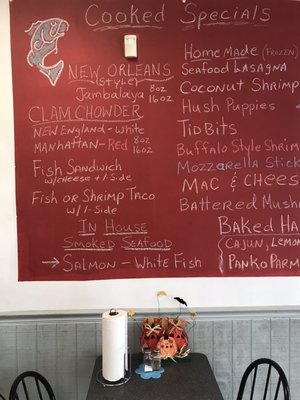 Cooked Specials
New Orleans
(Style)
Jambalaya 8oz
16oz
Clam Chowder
New England - White
Manhattan - Red 8oz
16oz
Fish Sandwich
w/cheese + 1 Side
Fish or Shrimp Taco
w/1-Side
In House
Smoked Seafood
→ Salmon - White Fish
Home Made (Frozen)
Seafood Lasagna
Coconut Shrimp
Hush Puppies
TidBits
Buffalo Style Shrim
Mozzarella Stick
Mac & Chees
Battered Mush
Baked Ha
Cajun, Lemon
Panko Parm